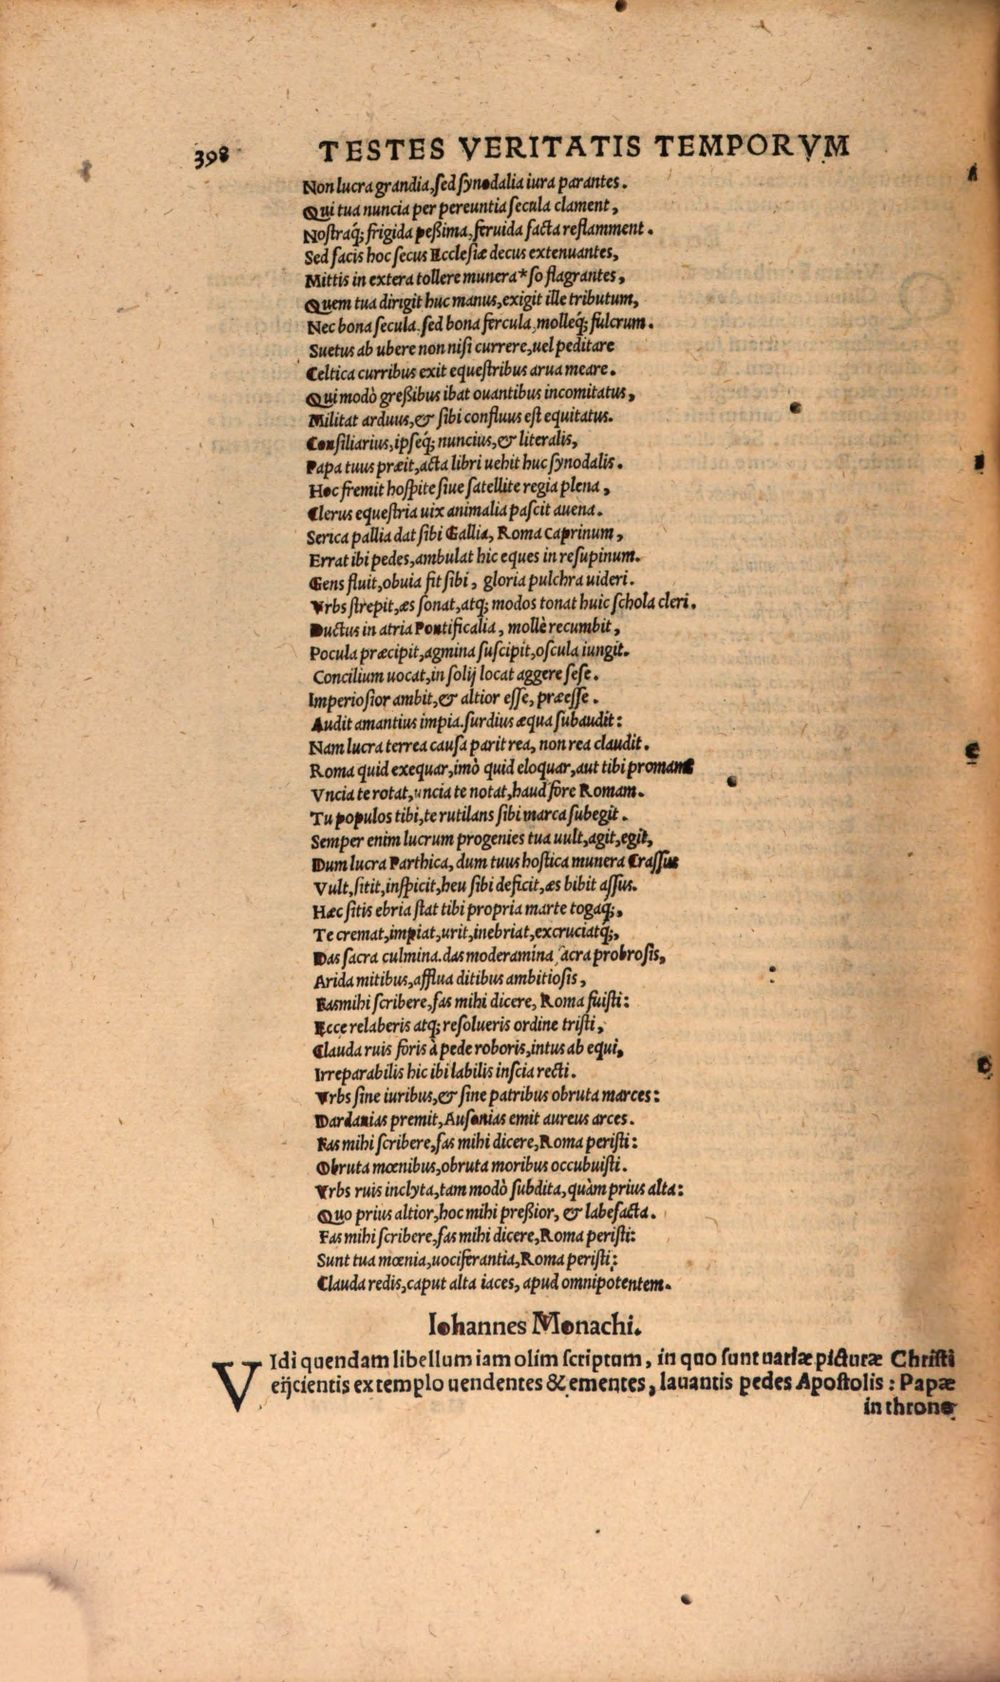 398 TESTES VERITATIS TEMPORVM
Non lucra grandia, sed synodalia iura parantes.
Qui tua nuncia per pereuntia secula clament,
Nostraq; frigida peßima, feruida facta reflamment.
Sed facis hoc secus Ecclesiæ decus extenuantes,
Mittis in extera tollere munera * so flagrantes,
Quem tua dirigit huc manus, exigit ille tributum,
Nec bona secula, sed bona fercula, molleq; fulcrum.
Suetus ab ubere non nisi currere, uel peditare
Celtica curribus exit equestribus arua meare.
Qui modò greßibus ibat ouantibus incomitatus,
Militat arduus, & sibi confluus est equitatus.
Consiliarius, ipseq; nuncius, & literalis,
Papa tuus præit, acta libri uehit huc synodalis.
Hoc fremit hospite siue satellite regia plena,
Clerus equestria uix animalia pascit auena.
Serica pallia dat sibi Gallia, Roma caprinum,
Errat ibi pedes, ambulat hic eques in resupinum.
Gens fluit, obuia fit sibi, gloria pulchra uideri.
Vrbs strepit, æs sonat, atq; modos tonat huic schola cleri.
Ductus in atria Pontificalia, mollè recumbit,
Pocula præcipit, agmina suscipit, oscula iungit.
Concilium uocat, in solij locat aggere sese.
Imperiosior ambit, & altior esse, præesse.
Audit amantius impia. surdius æqua subaudit:
Nam lucra terrea causa parit rea, non rea claudit.
Roma quid exequar, imò quid eloquar, aut tibi promam
Vncia te rotat, uncia te notat, haud fore Romam.
Tu populos tibi, te rutilans sibi marca subegit.
Semper enim lucrum progenies tua uult, agit, egit,
Dum lucra Parthica, dum tuus hostica munera Crassus
Vult, sitit, inspicit, heu sibi deficit, æs bibit assus.
Hæc sitis ebria stat tibi propria marte togaq;,
Te cremat, impiat, urit, inebriat, excruciatq;,
Das sacra culmina. das moderamina sacra probrosis,
Arida mitibus, afflua ditibus ambitiosis,
Fas mihi scribere, fas mihi dicere, Roma fuisti:
Ecce relaberis atq; resolueris ordine tristi,
Clauda ruis foris à pede roboris, intus ab equi,
Irreparabilis hic ibi labilis inscia recti.
Vrbs sine iuribus, & sine patribus obruta marces:
Dardanias premit, Ausonias emit aureus arces.
Fas mihi scribere, fas mihi dicere, Roma peristi:
Obruta mœnibus, obruta moribus occubuisti.
Vrbs ruis inclyta, tam modò subdita, quàm prius alta:
Quo prius altior, hoc mihi preßior, & labefacta.
Fas mihi scribere, fas mihi dicere, Roma peristi:
Sunt tua mœnia, uociferantia, Roma peristi:
Clauda redis, caput alta iaces, apud omnipotentem.
Iohannes Monachi.
VIdi quendam libellum iam olim scriptum, in quo sunt uariæ picturæ Christi
eijcientis ex templo uendentes & ementes, lauantis pedes Apostolis: Papæ
in throno